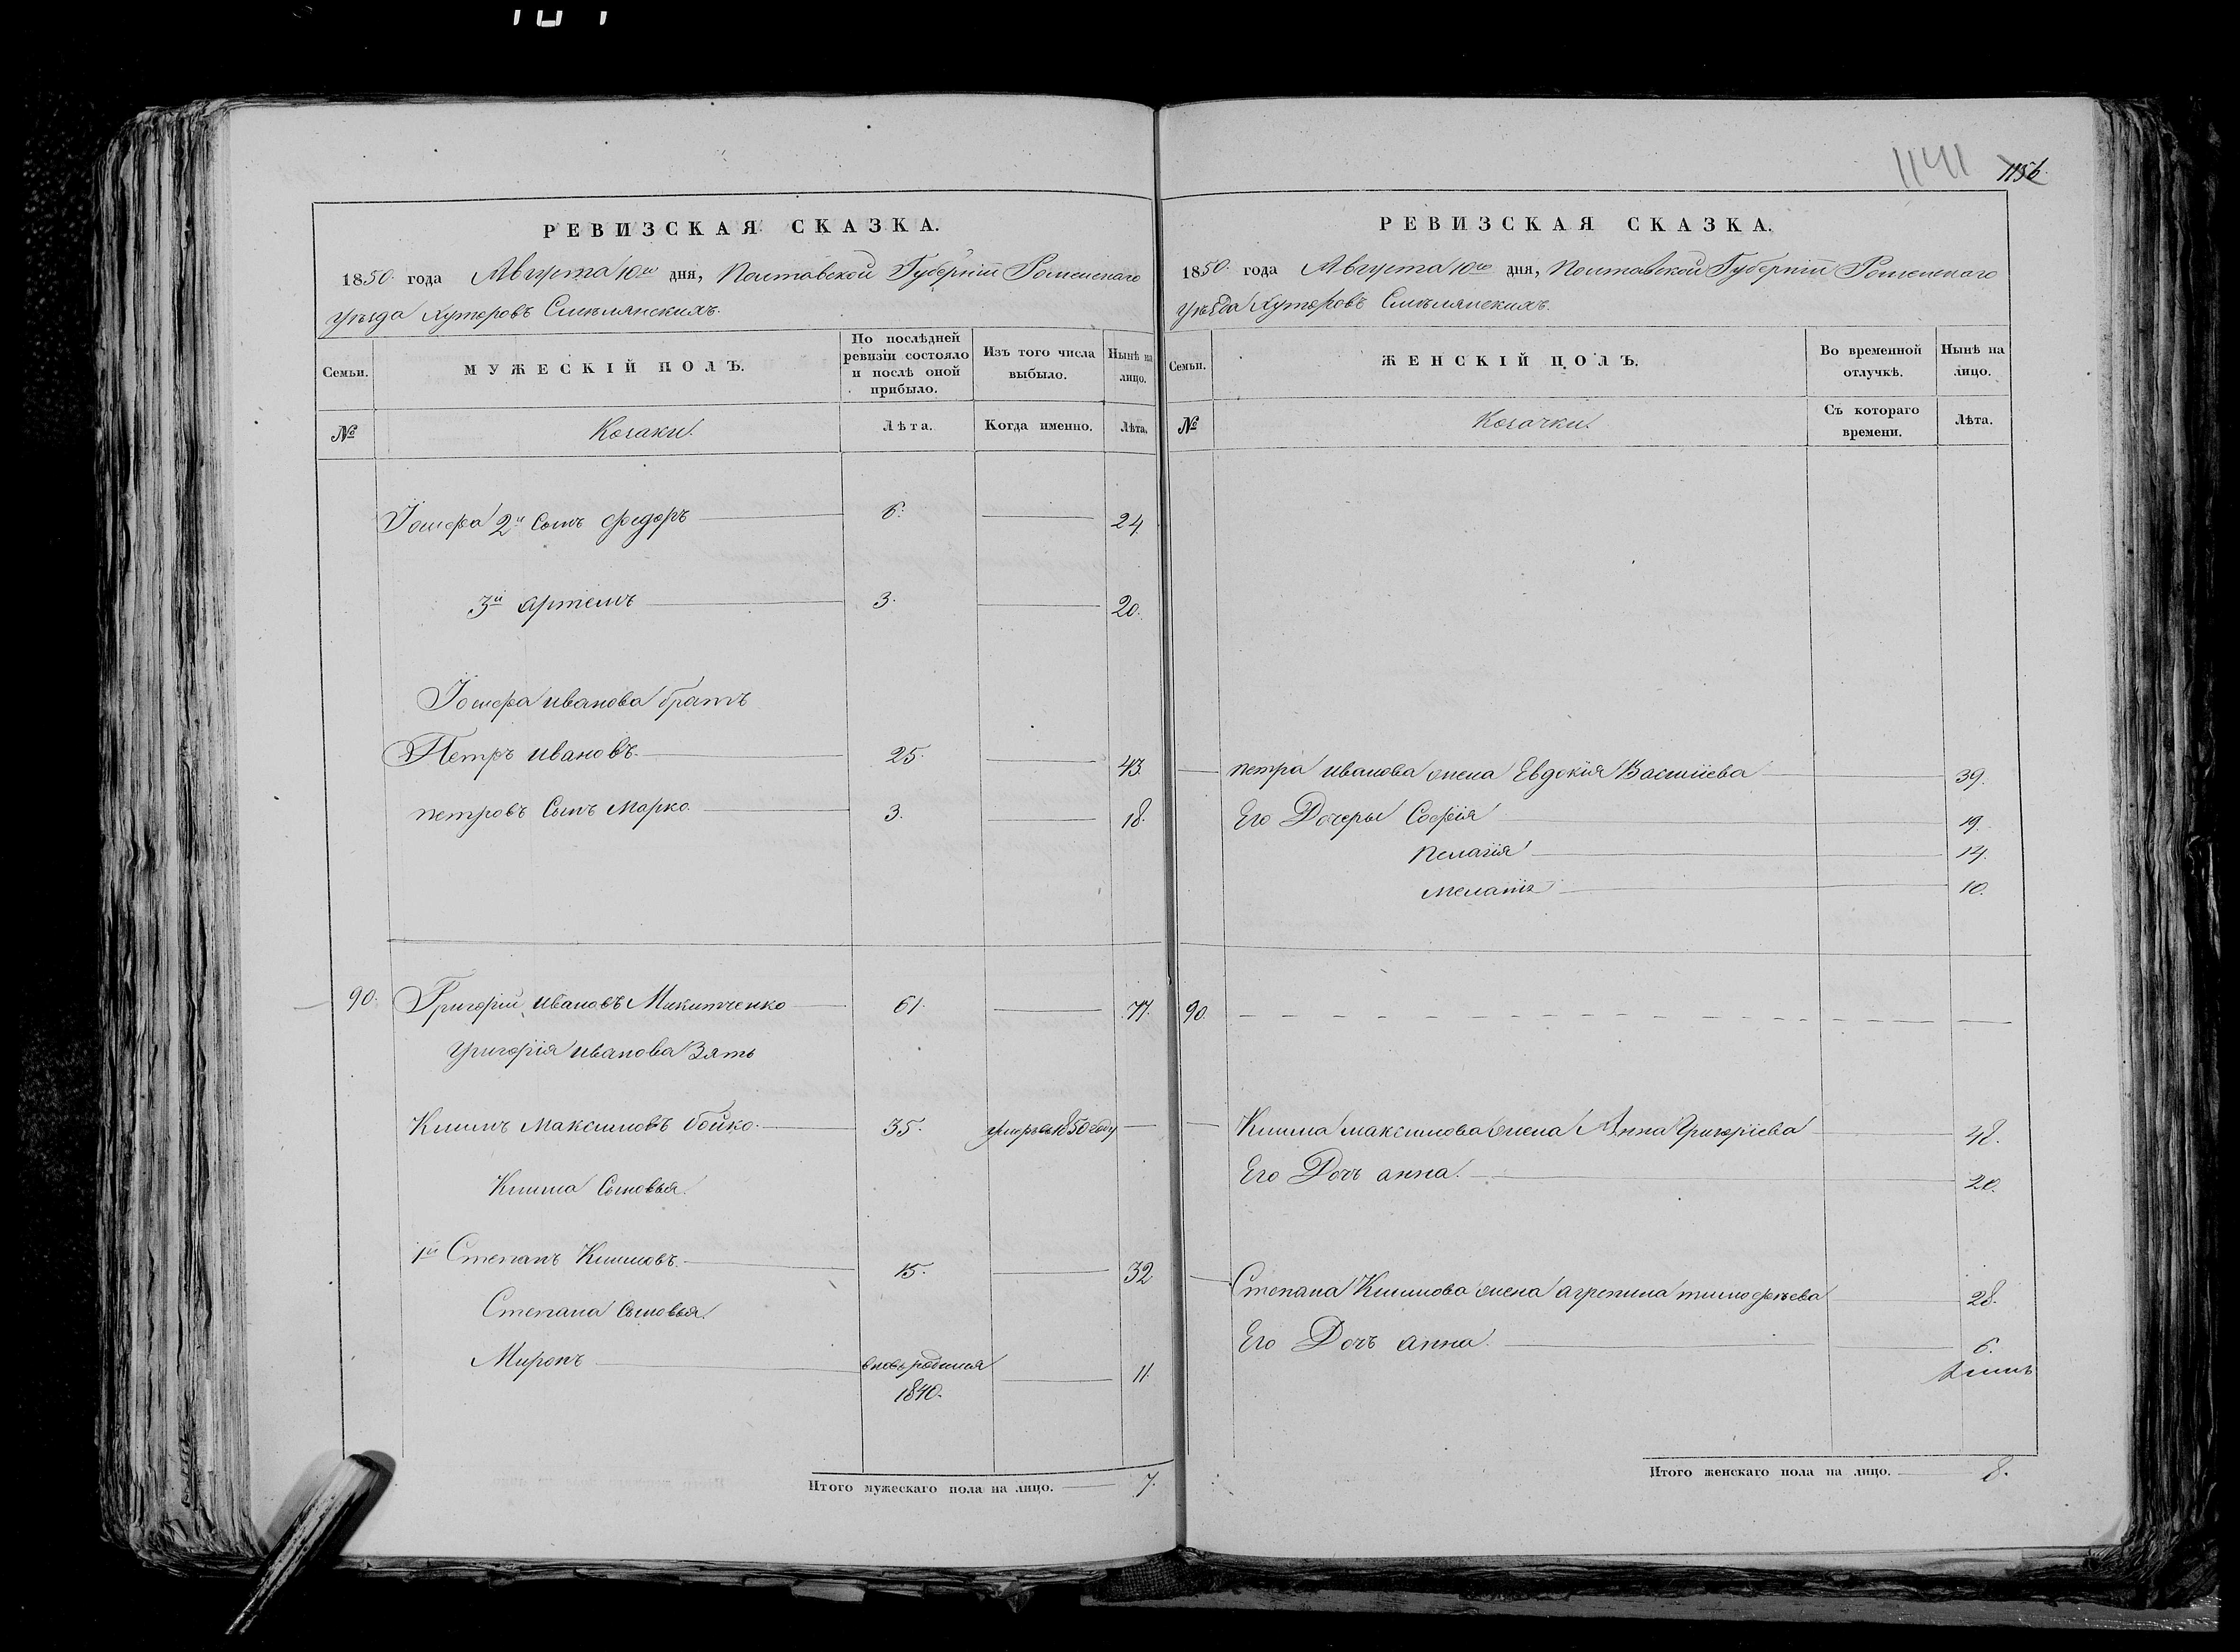 1141 1156.
РЕВИЗСКАЯ СКАЗКА.
1850 года Августа 10го дня, Полтавской Губерніи Роменскаго
уѣзда Хуторовъ Смѣлянскихъ.
Семьи.
МУЖЕСКІЙ ПОЛЪ.
По послѣдней ревизіи состояло и послѣ оной прибыло.
Изъ того числа выбыло.
Нынѣ на лицо.
№
Козаки.
Лѣта.
Когда именно.
Лѣта.
Іосифа 2й сынъ Федоръ 6. 24
3й артемъ 3. 20.
Іосифа иванова братъ
Петръ ивановъ 25. 43
петровъ сынъ Марко 3. 18.
90. Григорій ивановъ Микитченко 61. 77.
Григорія иванова Зять
Климъ максимовъ бойко 35. умеръ въ 1850 году
Клима сыновья
1й Степанъ Климовъ 15. 32
Степана сыновья
Миронъ вновь родился 11.
1840.
Итого мужескаго пола на лицо. 7.
РЕВИЗСКАЯ СКАЗКА.
1850 года Августа 10го дня, Полтавской Губерніи Роменскаго
уѣзда Хуторовъ Смѣлянскихъ.
Семьи.
ЖЕНСКІЙ ПОЛЪ.
Во временной отлучкѣ.
Нынѣ на лицо.
№
Козачки.
Съ котораго времени.
Лѣта.
петра иванова жена Евдокія Василіева 39.
Его Дочеры Софія 19.
пелагія 14.
меланія 10.
90.
Клима максимова жена Анна Григоріева 48.
Его Дочъ анна 20.
Степана Климова жена агрепина тимофѣева 28.
Его Дочъ анна 6.
Итого женскаго пола на лицо. 8.